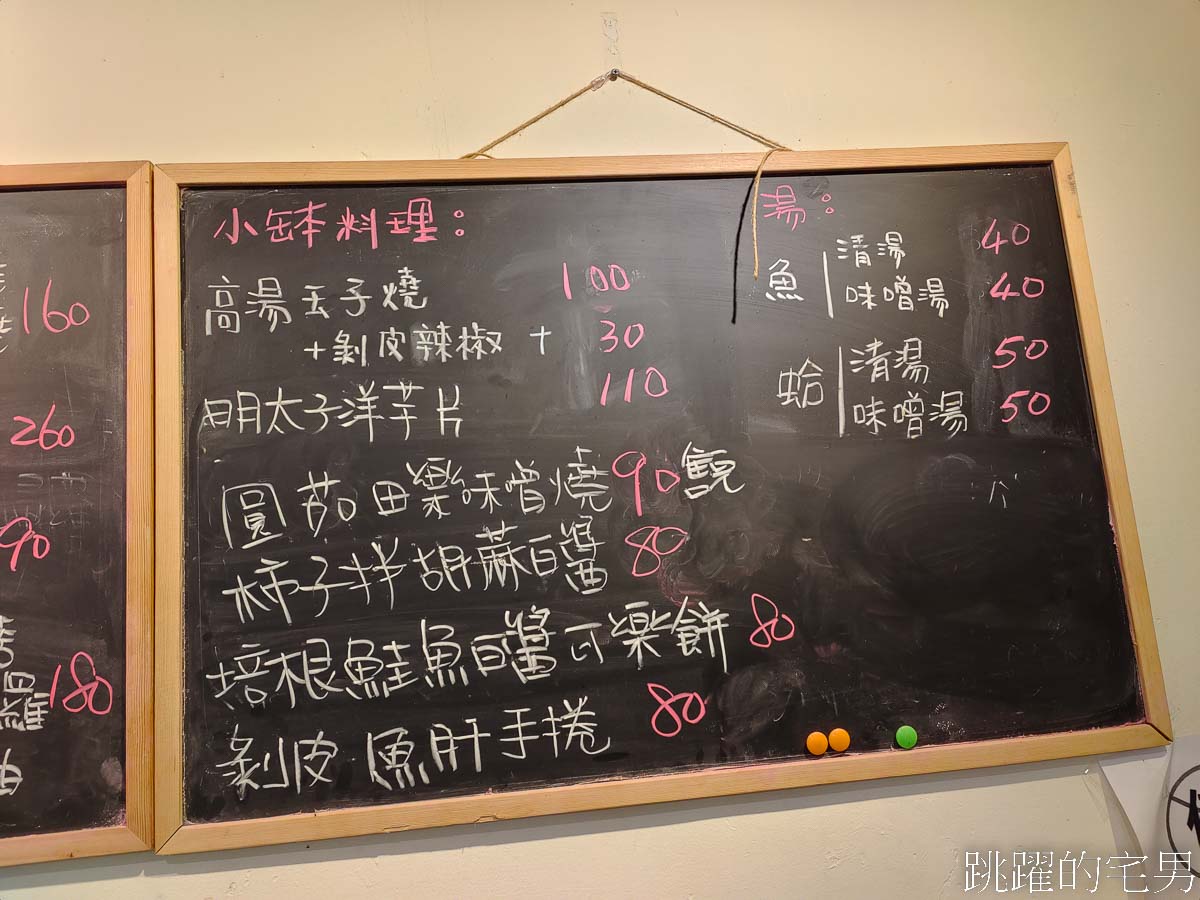 160
260
90
180
油
小缽料理：
高湯玉子燒 100
+剝皮辣椒 + 30
明太子洋芋片 110
圓茄田樂味噌燒 90
柿子拌胡蘿白醬 80
培根鮭魚白醬可樂餅 80
剝皮魚肝手捲 80
湯：
魚 清湯 40
味噌湯 40
蛤 清湯 50
味噌湯 50
跳躍的宅男